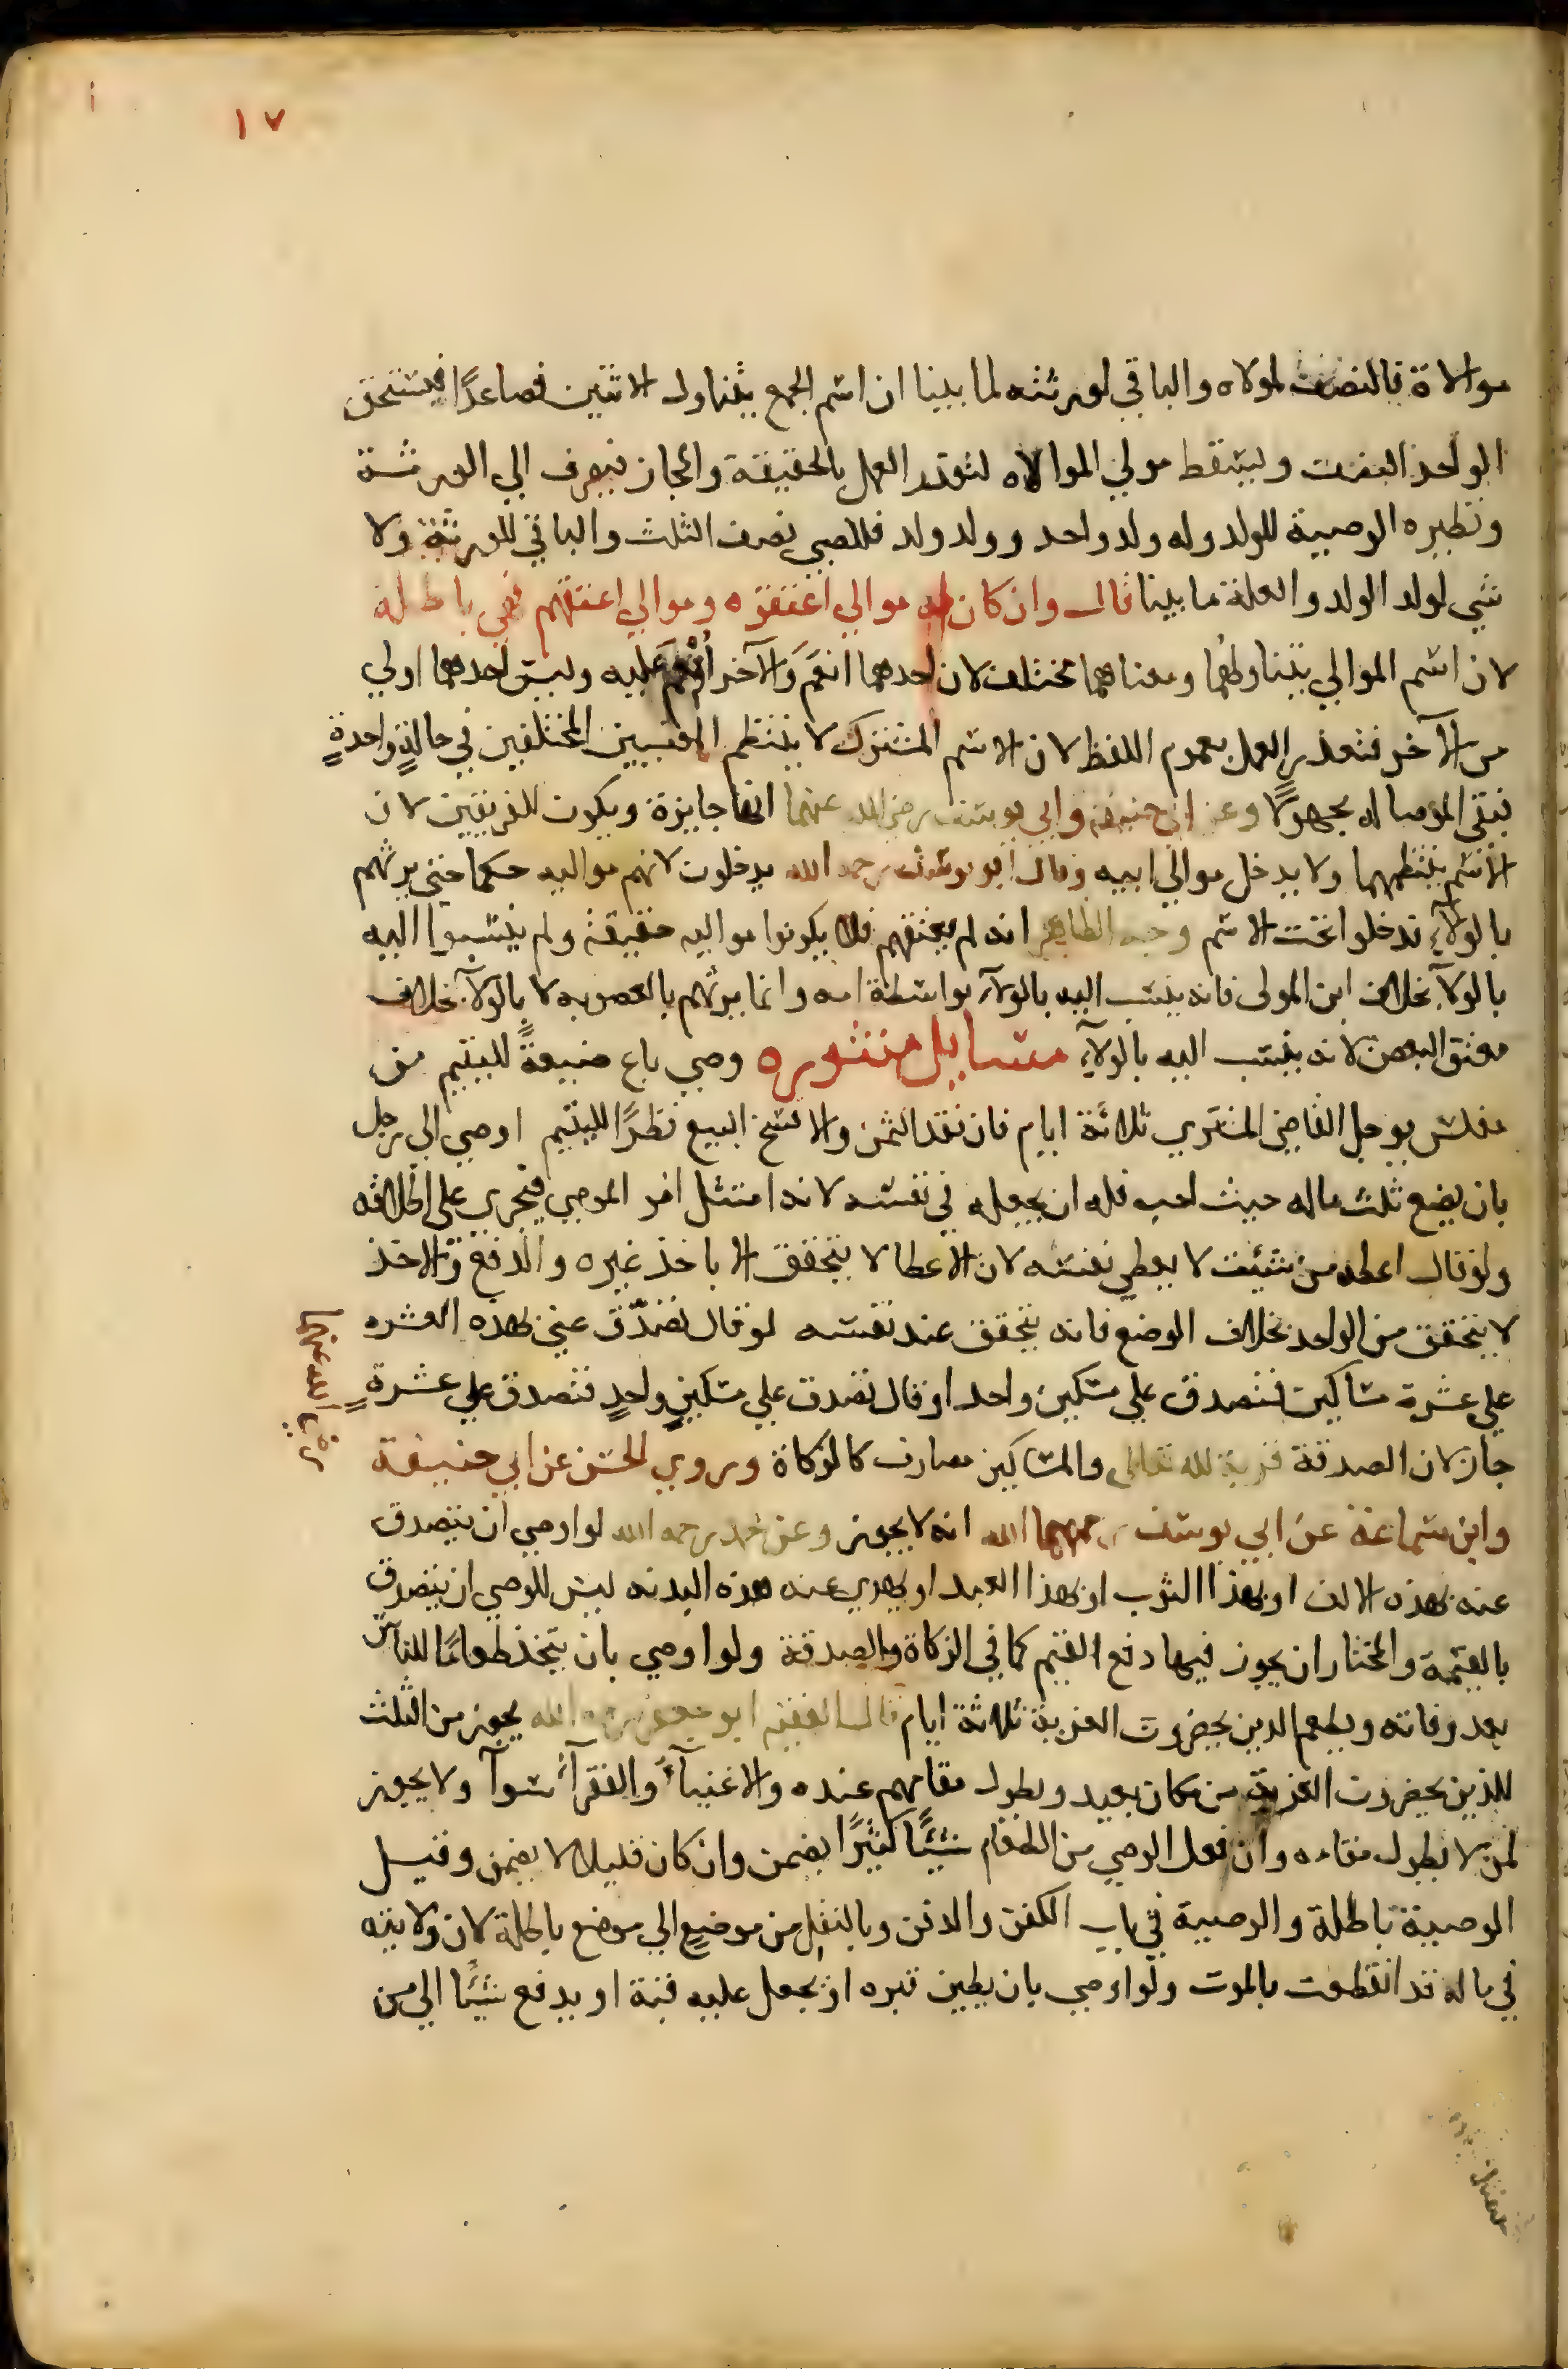 ١٧
موالاة فالنصف لمولاه والباقي لورثته لما بينا ان اسم الجمع يتناول الاثنين فصاعدًا فيستحق
الواحد النصف ويسقط مولي الموالاه لتعذر العمل بالحقيقة والمجاز فيصرف الي الورثة
ونظيره الوصية للولد وله ولد واحد وولد ولد فللصبي نصف الثلث والباقي للورثة ولا
شي لولد الولد والعلة ما بينا قال وان كان له موالي اعتقوه وموالي اعتقهم فهي باطلة
لان اسم الموالي يتناولهما ومعناهما مختلف لان احدهما انعَمَ وَالآخر اُنْعِمَ عَليه وليس احدهما اولي
من الآخر فتعذر العمل بعموم اللفظ لان الاسم المشترك لا ينتظم المعنيين المختلفين في حالةٍ واحدةٍ
فبقي الموصا له مجهولًا وعن ابي حنيفة وابي يوسف رضي الله عنهما انها جايزة ويكون للفريقين لان
الاسم ينتظمهما ولا يدخل موالي ابيه وقال ابو يوسف رحمه الله يدخلون لانهم مواليه حكما حتي يرثهم
بالولآء فدخلوا تحت الاسم وجه الظاهر انه لم يعتقهم فلا يكونوا مواليه حقيقة ولم ينسبوا اليه
بالولآء بخلاف ابن المولى فانه ينسب اليه بالولآء بواسطة ابيه وانما يرثهم بالعصوبه لا بالولآء بخلاف
معتق البعض لانه ينسب اليه بالولآء مسايل منثوره وصي باع ضيعةً لليتيم من
مفلس يوجل القاضي المشتري ثلاثة ايام فان نقد الثمن والا فسخ البيع نظرًا لليتيم اوصي الى رجل
بان يضع ثلث ماله حيث احب فله ان يجعله في نفسه لانه امتثل امر الموصي فيجري على اطلاقه
ولو قال اعطه من شيت لا يعطي نفسه لان الاعطا لا يتحقق الا باخذ غيره والدفع والاخذ
لا يتحقق من الواحد بخلاف الوضع فانه يتحقق عند نفسه لو قال تصدّق عني بهذه العشره
علي عشرة مساكين فتصدق علي مسكين واحد او قال تصدق علي مسكينٍ واحدٍ فتصدق علي عشرةٍ
جاز لان الصدقة قربة لله تعالى والمساكين مصارف كالزكاة وروي الحسن عن ابي حنيفة
رضي الله عنهما
وابن سماعة عن ابي يوسف رحمهما الله انه لا يجوز وعن محمد رحمه الله لو اوصي ان يتصدق
عنه بهذه الالف او بهذا الثوب او بهذا العبد او يهدي عنه هذه البدنه ليس للوصي ان يتصدق
بالقيمة والمختار ان يجوز فيها دفع القيم كما في الزكاة والصدقة ولو اوصي بان يتخذ طعامًا للناس
بعد وفاته ويطعم الذين يحضرون العزية ثلاثة ايام قال الفقيه ابو جعفر رحمه الله يجوز من الثلث
للذين يحضرون العزية من مكان بعيد ويطول مقامهم عنده والاغنيآء والفقرآء سوآ ولا يجوز
لمن لا يطول مقامه وان فعل الوصي من الطعام شيئًا كثيرًا يضمن وان كان قليلا لا يضمن وقيل
الوصية باطلة والوصية في باب الكفن والدفن وبالنقل من موضعٍ الي موضع باطلة لان ولايته
في ماله قد انقطعت بالموت ولو اوصي بان يطين قبره او يجعل عليه قبة او يدفع شيئًا الي من